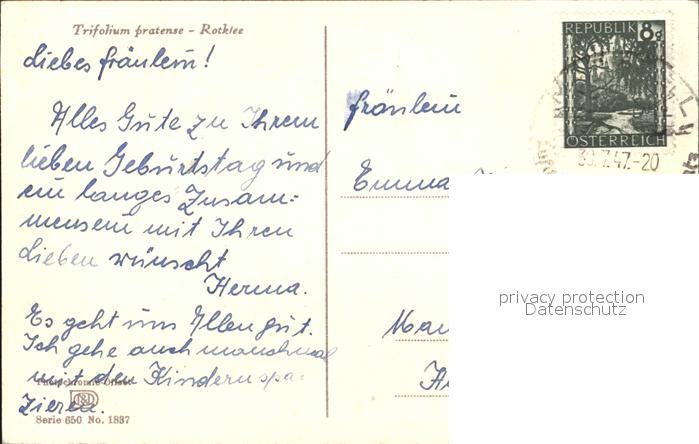 Trifolium pratense - Rotklee
Liebes fräulein!
Alles Gute zu Ihrem
lieben Geburtstag und
ein langes Zusam=
mensein mit Ihren
Lieben wünscht
Herma.
Es geht uns Allen gut.
Ich gehe auch manchmal
mit den Kindern spa-
zieren.
Offset
Serie 650 No. 1837
REPUBLIK 8g
ÖSTERREICH
30.7.47.-20
fräulein
Emma
privacy protection
Datenschutz